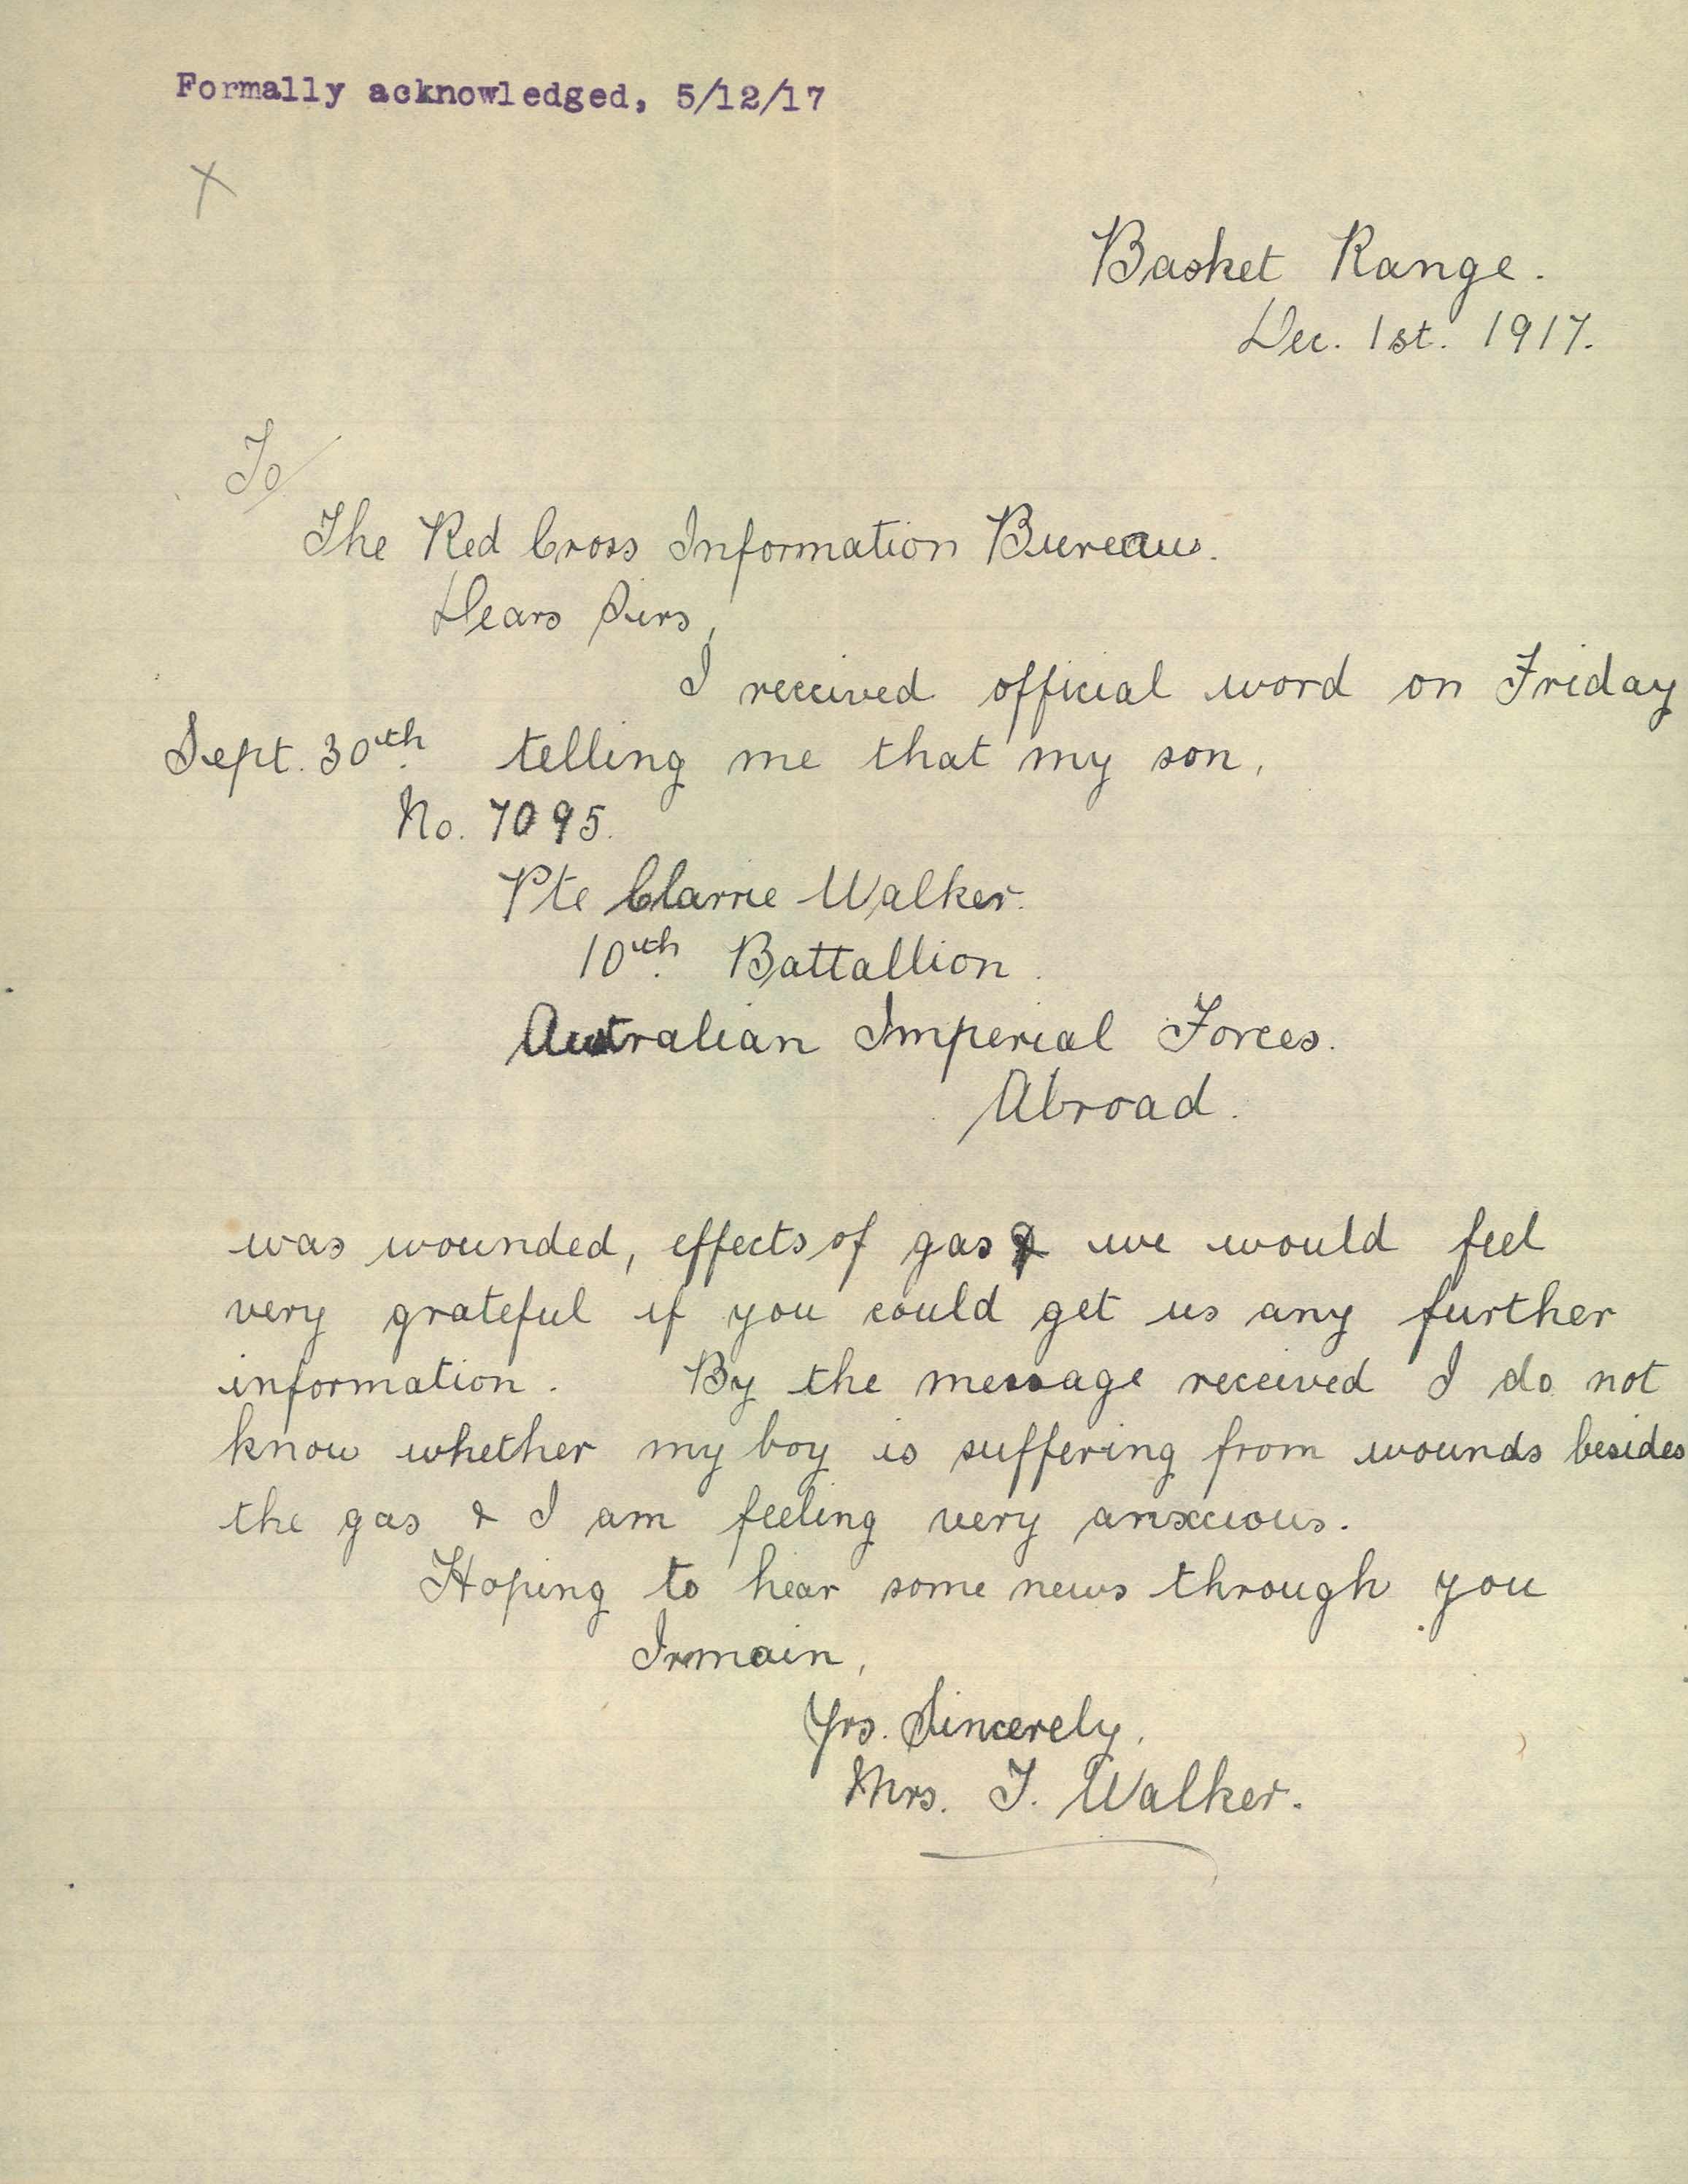 Formally acknowledged, 5/12/17
X
Basket Range.
Dec. 1st. 1917.
To/
The Red Cross Information Bureau.
Dears Sirs,
I received official word on Friday
Sept. 30th. telling me that my son,
No. 7095.
Pte Clarrie Walker.
10th. Battallion.
Australian Imperial Forces.
Abroad.
was wounded, effects of gas & we would feel
very grateful if you could get us any further
information. By the message received I do not
know whether my boy is suffering from wounds besides
the gas & I am feeling very anxcious.
Hoping to hear some news through you
Irmain,
Yrs. Sincerely,
Mrs. J. Walker.